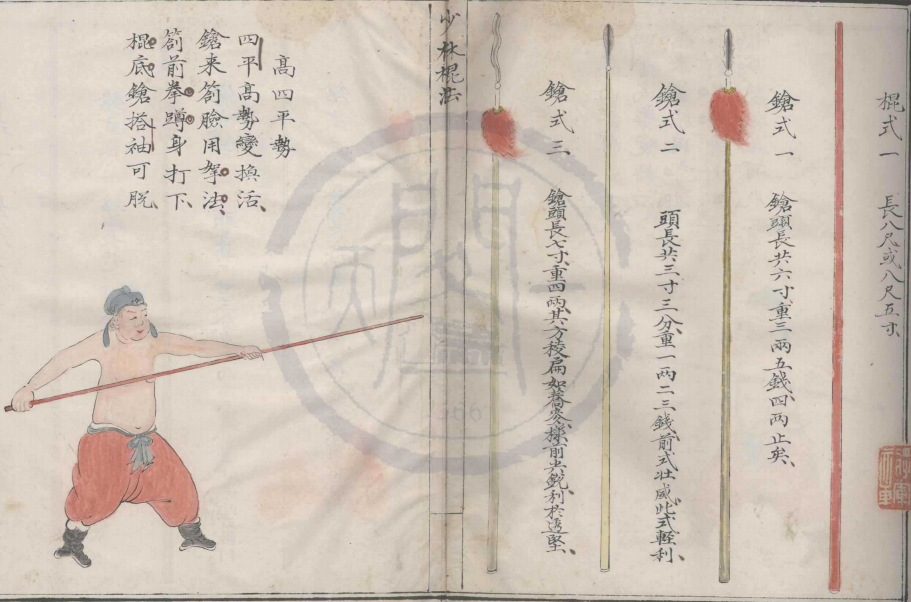 棍式一 長八尺或八尺五寸
鎗式一 鎗頭長共六寸重三兩五錢四兩止矣、
鎗式二 頭長共三寸三分、重一兩二三錢、前式壯威此式輕利、
鎗式三 鎗頭長七寸、重四兩、其方稜扁如蕎麥樣、前尖銳利於透堅、
少林棍法
高四平勢
四平高勢變換活、
鎗来劄臉用拏法、
劄前拳蹲身打下、
棍底鎗搭袖可脱